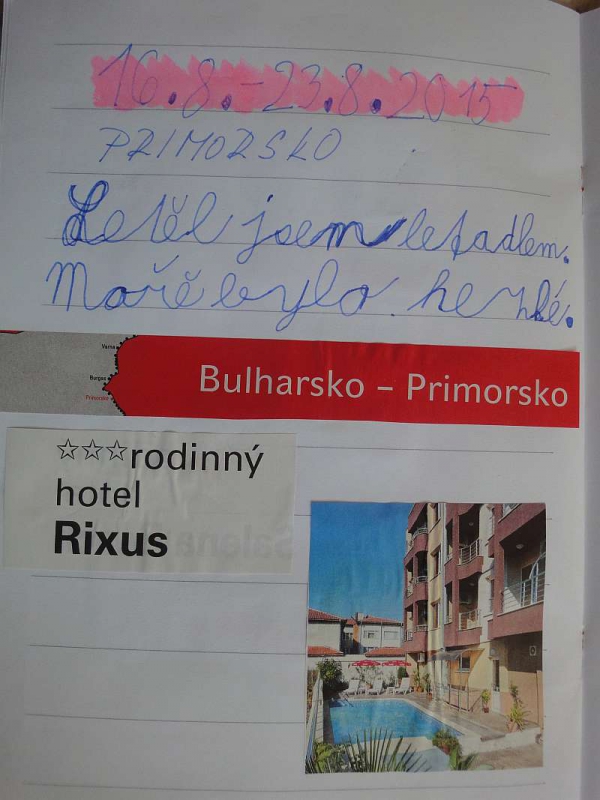 16.8.-23.8.2015
PRIMORSKO
Letěl jsem letadlem.
Moře bylo hezké.
Varna
Burgas
Primorsko
Bulharsko – Primorsko
☆☆☆rodinný
hotel
Rixus